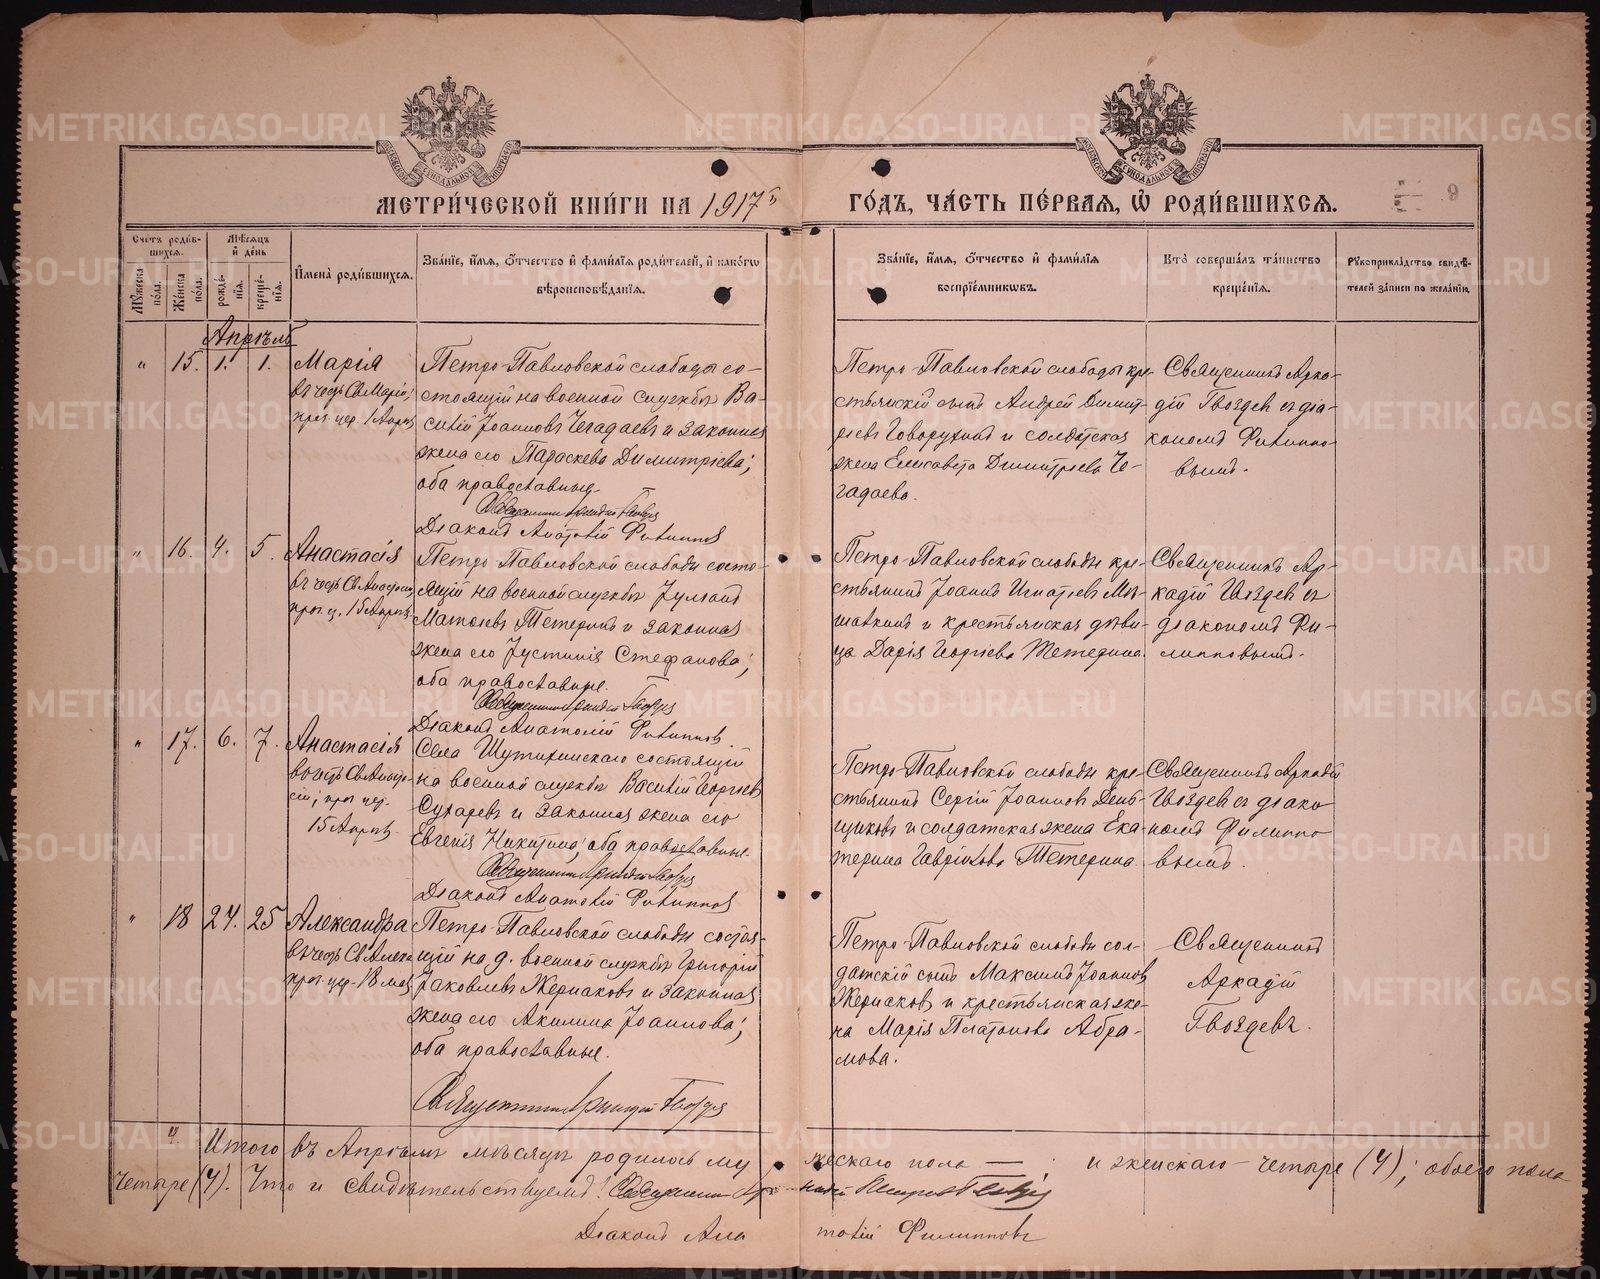 МЕТРИЧЕСКОЙ КНИГИ НА 1917ъ ГОДЪ, ЧАСТЬ ПЕРВАЯ, Ѽ РОДИВШИХСЯ.
9
Счетъ родившихся.
Мужеска пола.
Женска пола.
Мѣсяцъ и день
рожденія.
крещенія.
Имена родившихся.
Званіе, имя, отчество и фамилія родителей, и какогѡ вѣроисповѣданія.
Званіе, имя, отчество и фамилія воспріемникѡвъ.
Кто совершалъ таинство крещенія.
Рукоприкладство свидѣтелей записи по желанію.
Апрѣль
" 15. 1. 1.
Марія
въ честь Св. Маріи;
1 Апрѣ
Петро-Павловской слободы со-
стоящій на военной службѣ Ва-
силій Іоанновъ Чегадаевъ и законная
жена его Параскева Димитріева;
оба православные.
Священникъ Аркадій Гвоздев
Діаконъ Анатолій Филиппов
Петро-Павловской слободы кре-
стьянскій сынъ Андрей Димит-
ріевъ Говорухинъ и солдатская
жена Елисавета Димитріева Че-
гадаева.
Священникъ Арка-
дій Гвоздев съ діа-
кономъ Филиппо-
вымъ.
" 16. 4. 5.
Анастасія
въ честь Св. Анастасіи
15 Апрѣ
Петро-Павловской слободы состо-
ящій на военной службѣ Іуліанъ
Матѳіевъ Тетеринъ и законная
жена его Іустинія Стефанова;
оба православные.
Священникъ Аркадій Гвоздев
Діаконъ Анатолій Филиппов.
Петро-Павловской слободы кре-
стьянинъ Іоаннъ Игнатіевъ
и крестьянская дѣви-
ца Дарія Георгіева Тетерина.
Священникъ Ар-
кадій Гвоздев съ
діакономъ Фи-
липповымъ.
" 17. 6. 7.
Анастасія
въ честь Св. Анаста-
сіи;
15 Апрѣ.
Села Шутихинскаго состоящій
на военной службѣ Василій Георгіевъ
Сухаревъ и законная жена его
Евгенія Никитина; оба православные.
Священникъ Аркадій Гвоздев
Діаконъ Анатолій Филиппов
Петро-Павловской слободы кре-
стьянинъ Сергій Іоанновъ День-
щиковъ и солдатская жена Ека-
терина Гавріилова Тетерина.
Священникъ Аркадій
Гвоздев съ діако-
номъ Филиппо-
вымъ.
" 18 24. 25
Александра
въ честь Св. Алекса
18 мая
Петро-Павловской слободы состоя-
щій на д. военной службѣ Григорій
Іаковлевъ Жернаковъ и законная
жена его Акилина Іоаннова;
оба православные.
Священникъ Аркадій Гвоздев
Петро-Павловской слободы сол-
датскій сынъ Максимъ Іоаннов
Жернаковъ и крестьянская же-
на Марія Платонова Абра-
мова.
Священникъ
Аркадій
Гвоздевъ.
Итого въ Апрѣлѣ мѣсяцѣ родилось мужескаго пола — ; и женскаго — четыре (4); обоего пола
четыре (4). Что и свидѣтельствуемъ: Священникъ Аркадій Гвоздев
Діаконъ Анатолій Филипповъ
METRIKI.GASO-URAL.RU